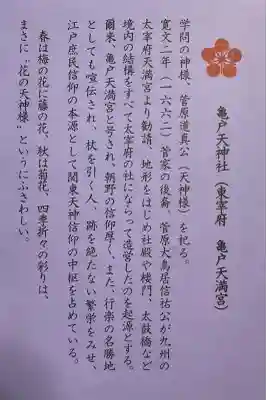 亀戸天神社(東宰府 亀戸天満宮)
学問の神様、菅原道真公(天神様)を祀る。
寛文二年(一六六二)菅家の後裔、菅原大鳥居信祐公が九州の
太宰府天満宮より勧請、地形をはじめ社殿や楼門、太鼓橋など
境内の結構をすべて太宰府の社にならって造営したのを起源とする。
爾来、亀戸天満宮と号され、朝野の信仰厚く、また、行楽の名勝地
としても喧伝され、杖を引く人、跡を絶たない繁栄をみせ、
江戸庶民信仰の本源として関東天神信仰の中枢を占めている。
春は梅の花に藤の花、秋は菊花、四季折々の彩りは、
まさに"花の天神様"というにふさわしい。